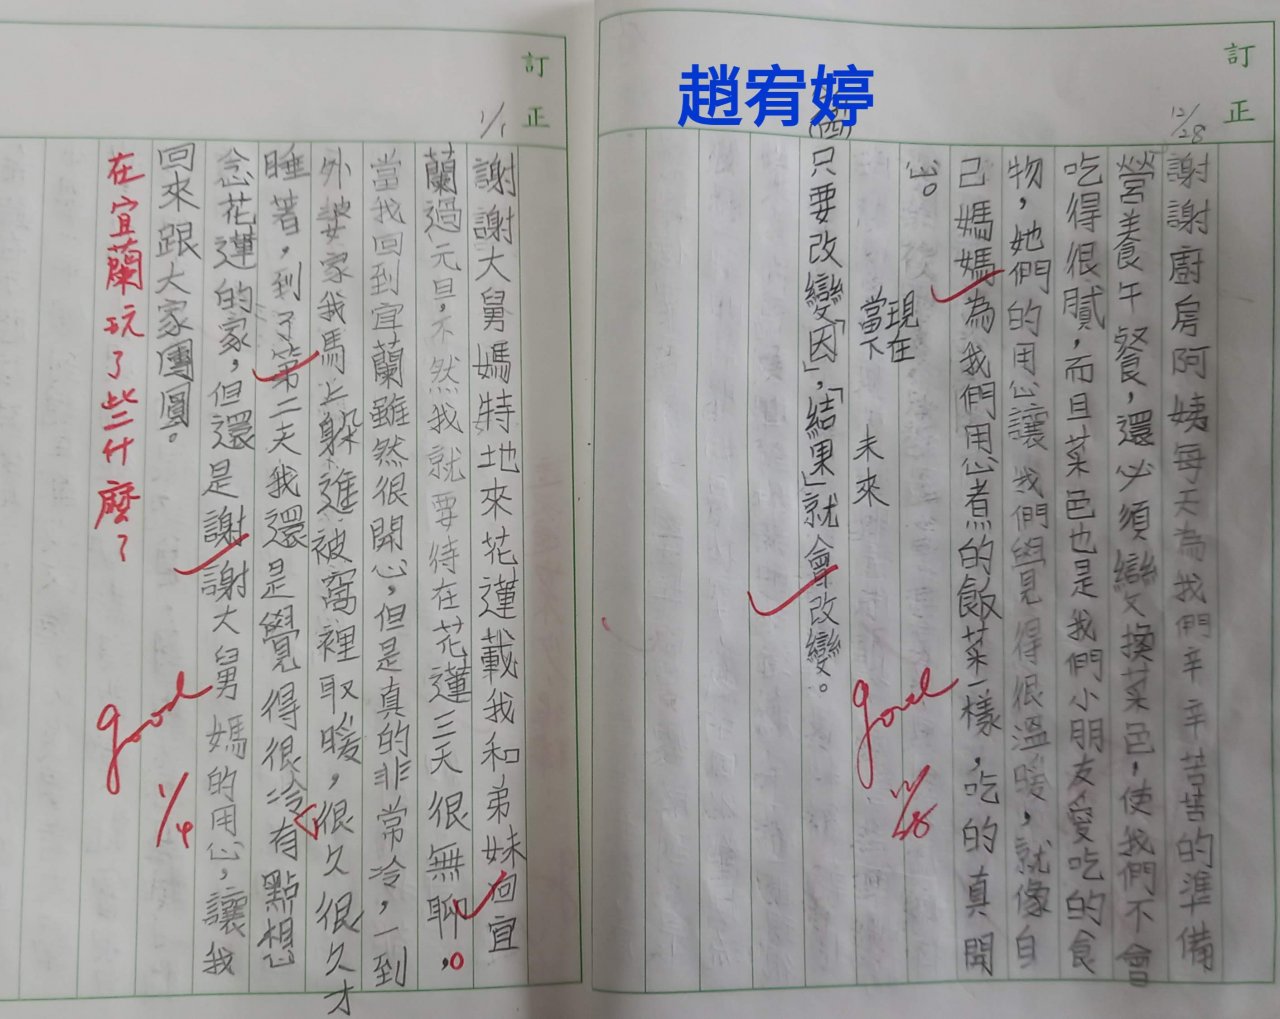 趙宥婷
訂正
12/28
謝謝廚房阿姨每天為我們辛辛苦苦的準備
營養午餐，還必須變換菜色，使我們不會
吃得很膩，而且菜色也是我們小朋友愛吃的食
物，她們的用心讓我們覺得很溫暖，就像自
己媽媽為我們用心煮的飯菜一樣，吃的真開
心。
現在
當下
未來
(四)只要改變「因」，「結果」就會改變。
good
12/28
訂正
1/1
謝謝大舅媽特地來花蓮載我和弟妹回宜
蘭過元旦，不然我就要待在花蓮三天很無聊。
當我回到宜蘭雖然很開心，但是真的非常冷，一到
外婆家我馬上躲進被窩裡取暖，很久很久才
睡著，到了第二天我還是覺得很冷有點想
念花蓮的家，但還是謝謝大舅媽的用心，讓我
回來跟大家團圓。
在宜蘭玩了些什麼？
good
1/4